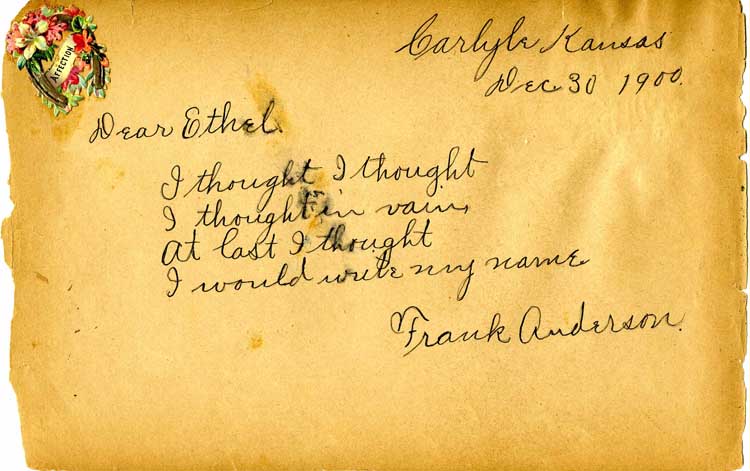 AFFECTION
Carlyle Kansas
Dec. 30 1900.
Dear Ethel.
I thought I thought
I thought in vain,
At last I thought
I would write my name
Frank Anderson.